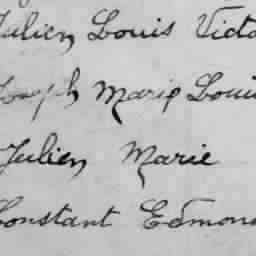 Julien Louis Victo
Joseph Marie Loui
Julien Marie
Constant Edmon